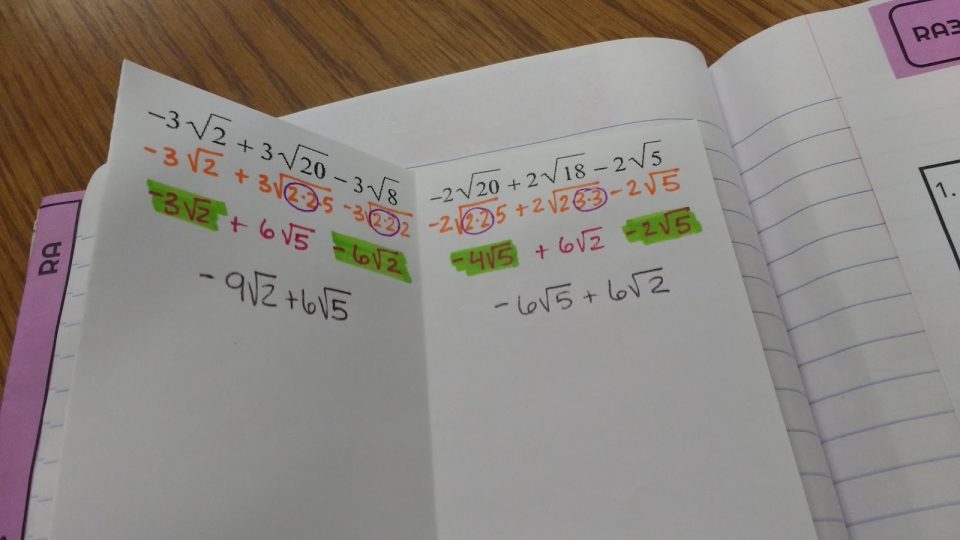 -3√2 + 3√20 - 3√8
-3√2 + 3√2·2·5 -3√2·2·2
-3√2 + 6√5 -6√2
-9√2 + 6√5
-2√20 + 2√18 - 2√5
-2√2·2·5 + 2√2·3·3 - 2√5
-4√5 + 6√2 -2√5
-6√5 + 6√2
RA
RA3
1.